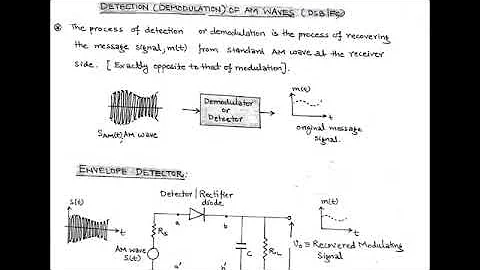 DETECTION (DEMODULATION) OF AM WAVES (DSB/FC)
The process of detection or demodulation is the process of recovering
the message signal, m(t) from standard AM wave at the receiver
side. [Exactly opposite to that of modulation].
Demodulator
or
Detector
m(t)
t
SAM(t), AM wave
original message
signal.
ENVELOPE DETECTOR:
S(t)
t
Detector/Rectifier
diode
m(t)
t
Rs
a
b
C
RL
AM wave
S(t)
a'
b'
Vo = Recovered Modulating
Signal